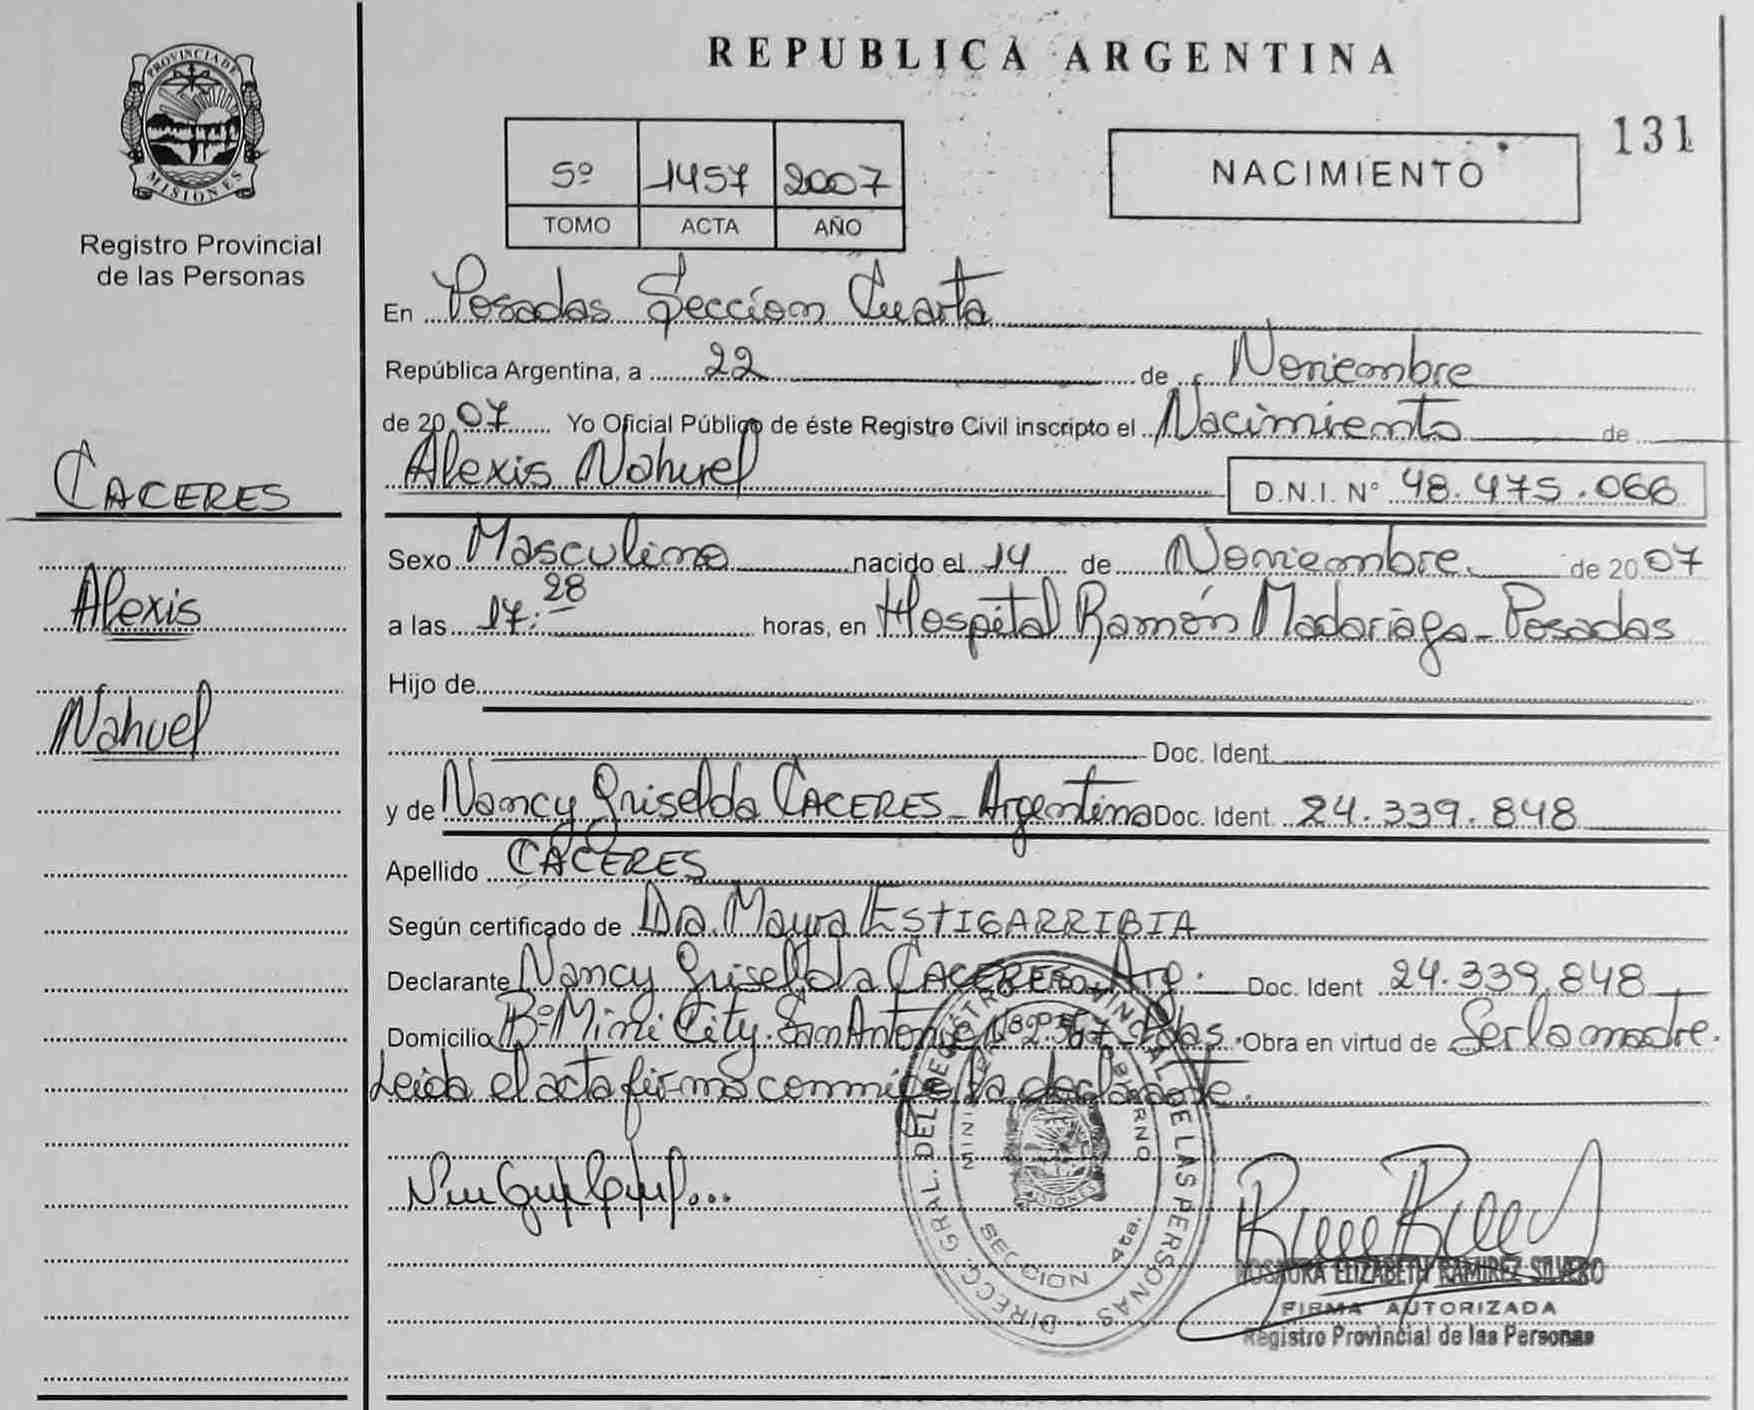 REPUBLICA ARGENTINA
PROVINCIA DE
MISIONES
Registro Provincial
de las Personas
5º 1457 2007
TOMO ACTA AÑO
NACIMIENTO
131
CACERES
Alexis
Nahuel
En Posadas Sección Cuarta
República Argentina, a 22 de Noviembre
de 2007 Yo Oficial Público de éste Registro Civil inscripto el Nacimiento de
Alexis Nahuel D.N.I. Nº 48.475.066
Sexo Masculino nacido el 14 de Noviembre de 2007
a las 17:28 horas, en Hospital Ramón Madariaga - Posadas
Hijo de
Doc. Ident.
y de Nancy Griselda CACERES - Argentina Doc. Ident. 24.339.848
Apellido CACERES
Según certificado de Dra. Mayra ESTIGARRIBIA
Declarante Nancy Griselda CACERES - Arg. Doc. Ident 24.339.848
Domicilio Bº Mini City. San Antonio Nº 2.567 - Pdas. Obra en virtud de Ser la madre.
Leida el acta firma conmigo la declarante.
DIRECC. GRAL. DEL REGISTRO PROVINCIAL DE LAS PERSONAS
SECCION 4ta.
MISIONES
ROSAURA ELIZABETH RAMIREZ SILVERO
FIRMA AUTORIZADA
Registro Provincial de las Personas